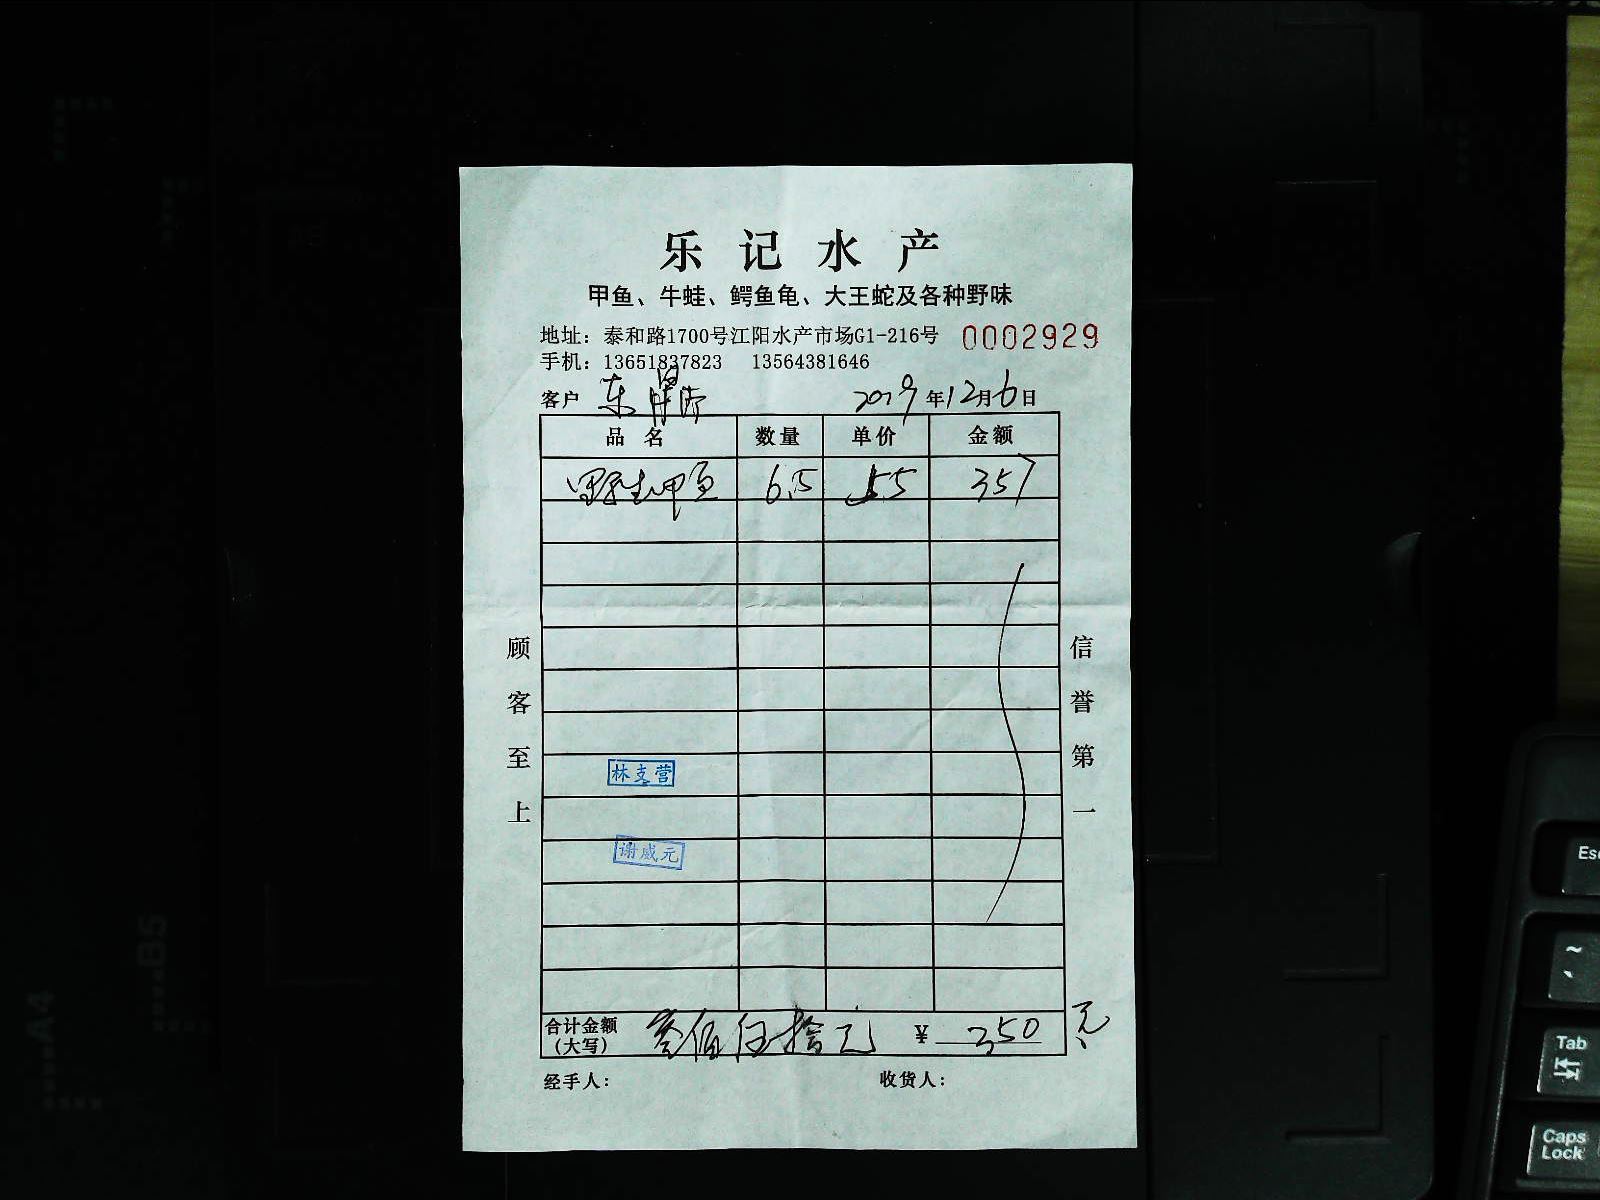 乐记水产
甲鱼、牛蛙、鳄鱼龟、大王蛇及各种野味
地址：泰和路1700号江阳水产市场G1-216号 0002929
手机：13651837823 13564381646
客户 东 2019年12月6日
品名 数量 单价 金额
野生甲鱼 6.5 55 357
顾客至上
信誉第一
林支营
谢威元
合计金额（大写） 叁佰伍拾元 ¥350元
经手人： 收货人：
A4
B5
Esc
~
Tab
Caps Lock